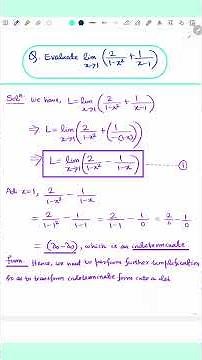 Q. Evaluate lim x→1 (2/(1-x²) + 1/(x-1))
Solⁿ: We have, L = lim x→1 (2/(1-x²) + 1/(x-1))
⇒ L = lim x→1 (2/(1-x²) + (1/-(1-x)))
⇒ L = lim x→1 (2/(1-x²) - 1/(1-x)) ①
At x=1, 2/(1-x²) - 1/(1-x)
= 2/(1-1²) - 1/(1-1) = 2/(1-1) - 1/0 = 2/0 - 1/0
= (∞-∞), which is an indeterminate
form. Hence, we need to perform further simplification
so as to transform indeterminate form into a det